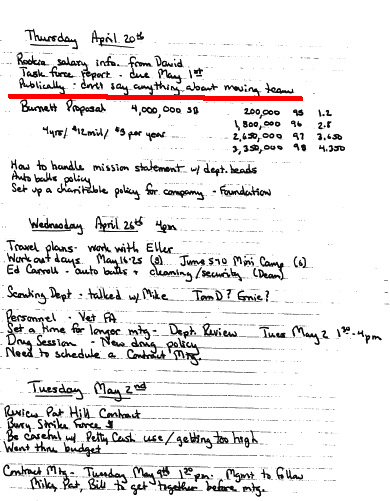 Thursday April 20th
Rookie salary info. from David
Task force report - due May 1st
Publically - don't say anything about moving team
Burnett Proposal 4,000,000 SB 200,000 95 1.2
1,800,000 96 2.8
4 yrs/ $12 mil/ $3 per year 2,650,000 97 3.650
3,350,000 98 4.350
How to handle mission statement w/ dept. heads
Auto balls policy
Set up a charitable policy for company - Foundation
Wednesday April 26th 4pm
Travel plans - work with Eller
Work out days May 16-25 (8) June 5-10 Mini Camp (6)
Ed Carroll - auto balls + cleaning/security (Dean)
Scouting Dept - talked w/ Mike Tom D? Ernie?
Personnel - Vet FA
Set a time for longer mtg - Dept. Review Tues May 2 1:30-4pm
Drug Session - New drug policy
Need to schedule a Contract Mtg.
Tuesday May 2nd
Review Pat Hill Contract
Bury Strike Force $
Be careful w/ Petty Cash use / getting too high
Went thru budget
Contract Mtg - Tuesday May 9th 1:30 pm. Mgmt to follow
Mike, Pat, Bill to get together before mtg.